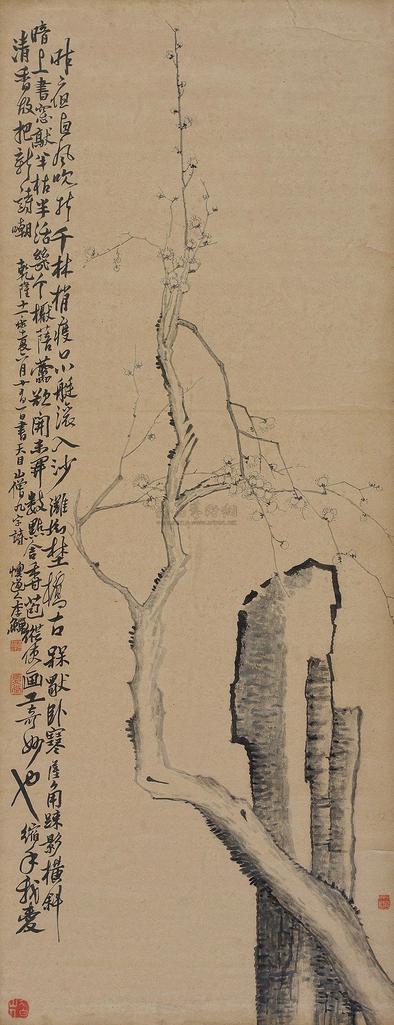 昨夜西風吹折千林梢渡口小艇滾入沙灘坳埜橋古槑獨臥寒屋角疎影橫斜
暗上書窓敲半枯半活幾个橛蓓蕾欲開未開數點含香苞縱使画工奇妙也縮手我愛
清香故把新詩嘲 乾隆十一年夏六月十有一日書天目山僧九字詩 懊道人李鱓